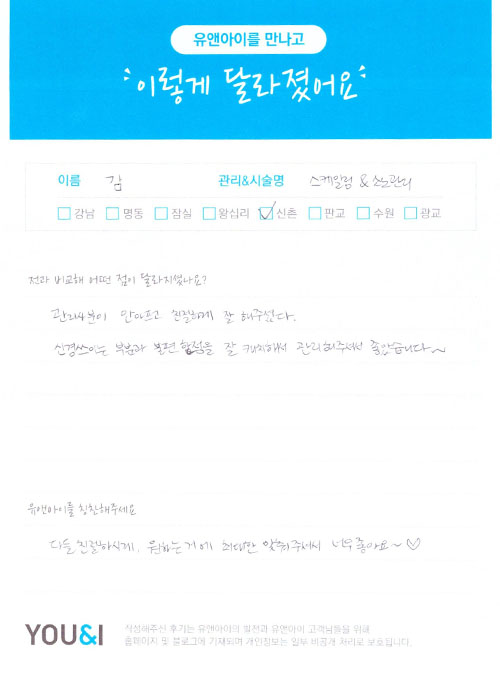 유앤아이를 만나고
이렇게 달라졌어요
이름 김 관리&시술명 스케일링 & 소노관리
강남 명동 잠실 왕십리 신촌 판교 수원 광교
전과 비교해 어떤 점이 달라지셨나요?
관리사분이 안아프고 친절하게 잘 해주셨다.
신경쓰이는 부분과 불편함점을 잘 캐치해서 관리해주셔서 좋았습니다~
유앤아이를 칭찬해주세요
다들 친절하시게, 원하는 거에 최대한 맞춰주셔서 너무 좋아요~♡
YOU&I 작성해주신 후기는 유앤아이의 발전과 유앤아이 고객님들을 위해
홈페이지 및 블로그에 기재되며 개인정보는 일부 비공개 처리로 보호됩니다.